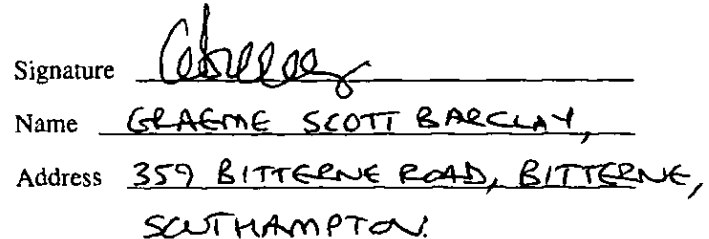 Signature
Name GRAEME SCOTT BARCLAY,
Address 359 BITTERNE ROAD, BITTERNE,
SOUTHAMPTON.